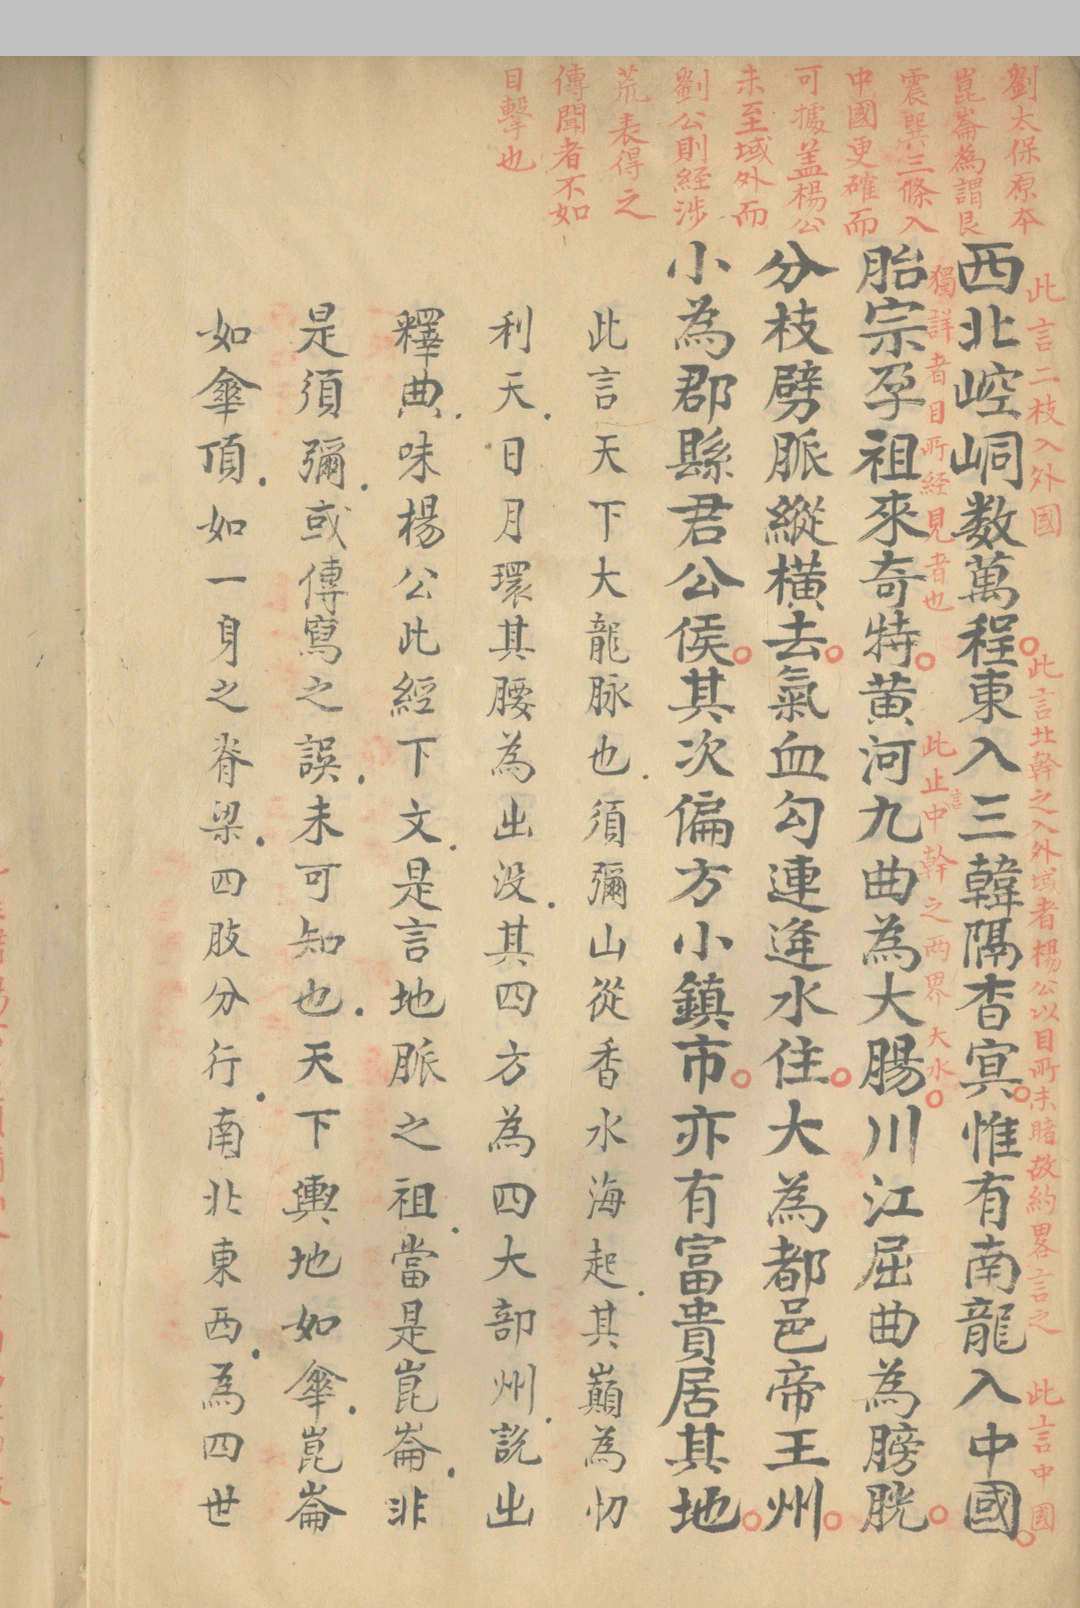 劉太保原本
崑崙為謂艮
震巽三條入
中國更確而
可據盖楊公
未至域外而
劉公則經涉
荒表得之
傳聞者不如
目擊也
此言二枝入外國
此言北幹之入外域者楊公以目所未睹故約畧言之
此言中國
西北崆峒数萬程東入三韓隔杳冥惟有南龍入中國
獨詳者目所經見者也
此止言中幹之两界大水
胎宗孕祖來奇特黄河九曲為大腸川江屈曲為膀胱
分枝劈脈縱横去氣血勾連逢水住大為都邑帝王州
小為郡縣君公侯其次偏方小鎮市亦有富貴居其地
此言天下大龍脉也須彌山從香水海起其巔為忉
利天日月環其腰為出没其四方為四大部州說出
釋典味楊公此經下文是言地脈之祖當是崑崙非
是須彌或傳寫之誤未可知也天下輿地如傘崑崙
如傘頂如一身之脊梁四肢分行南北東西為四世